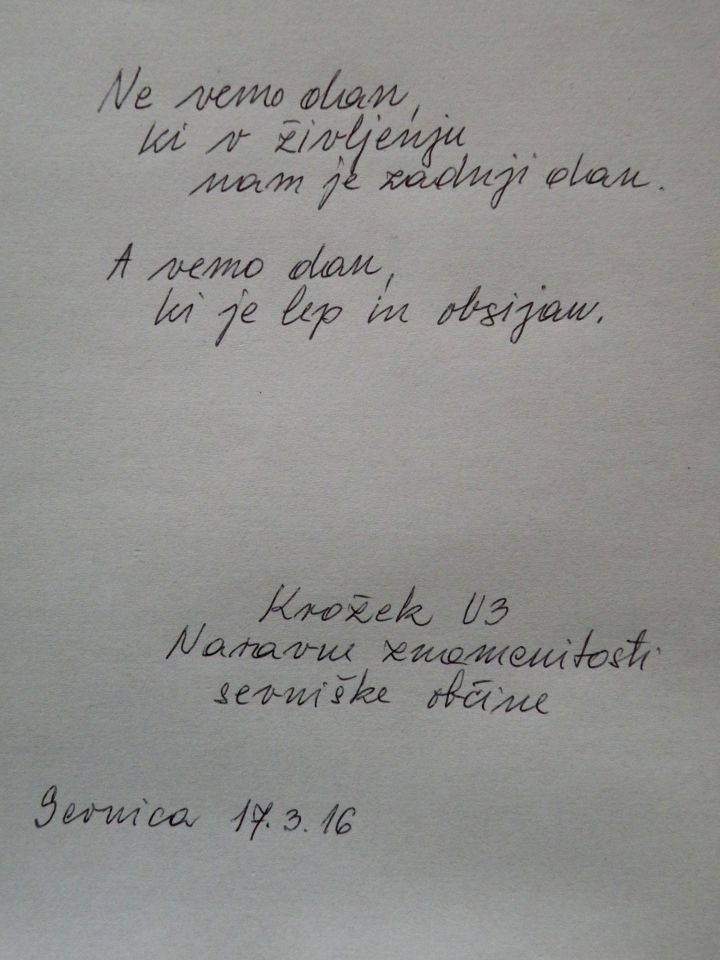 Ne vemo dan,
ki v življenju
nam je zadnji dan.
A vemo dan,
ki je lep in obsijan.
Krožek U3
Naravne znamenitosti
sevniške občine
Sevnica 17.3.16